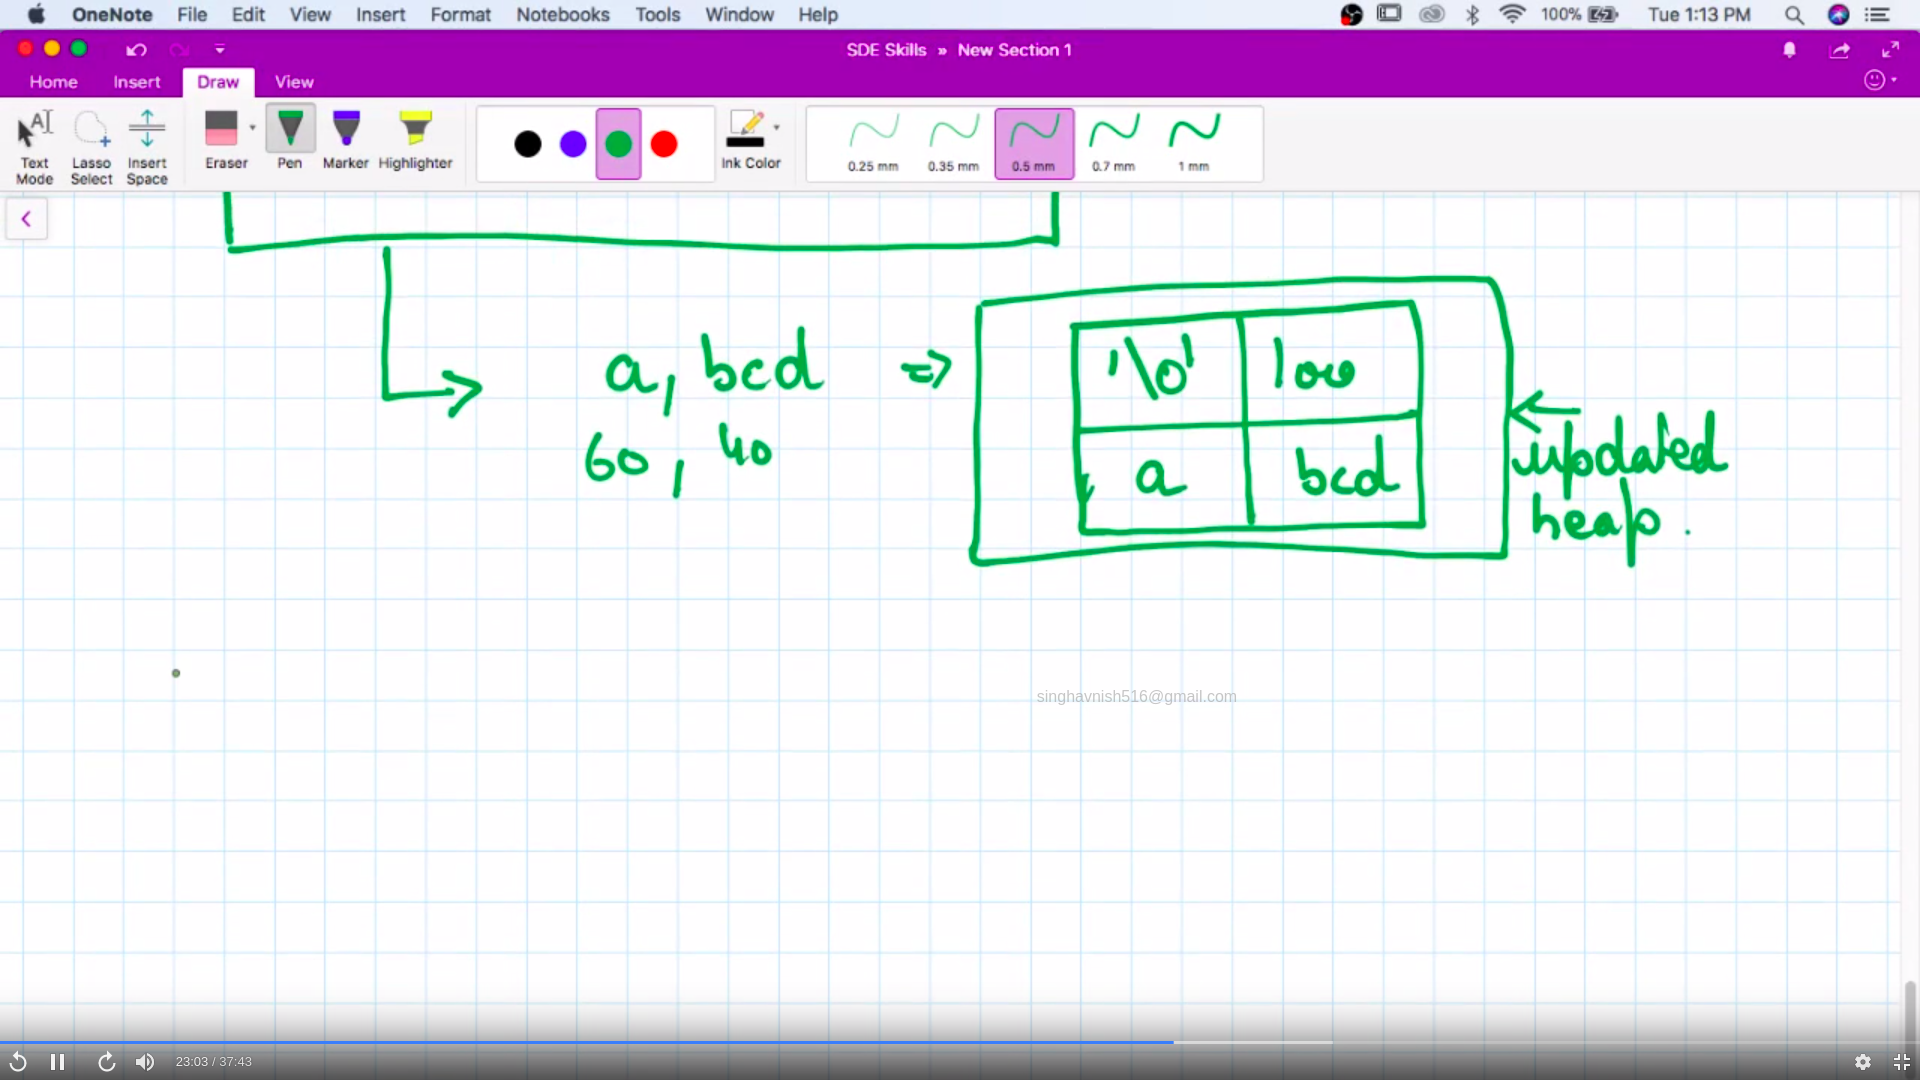 OneNote File Edit View Insert Format Notebooks Tools Window Help 100% Tue 1:13 PM
SDE Skills » New Section 1
Home Insert Draw View
Text Mode Lasso Select Insert Space Eraser Pen Marker Highlighter Ink Color 0.25 mm 0.35 mm 0.5 mm 0.7 mm 1 mm
a, bcd => '\0' 100
60, 40 a bcd
updated
heap.
singhavnish516@gmail.com
23:03 / 37:43